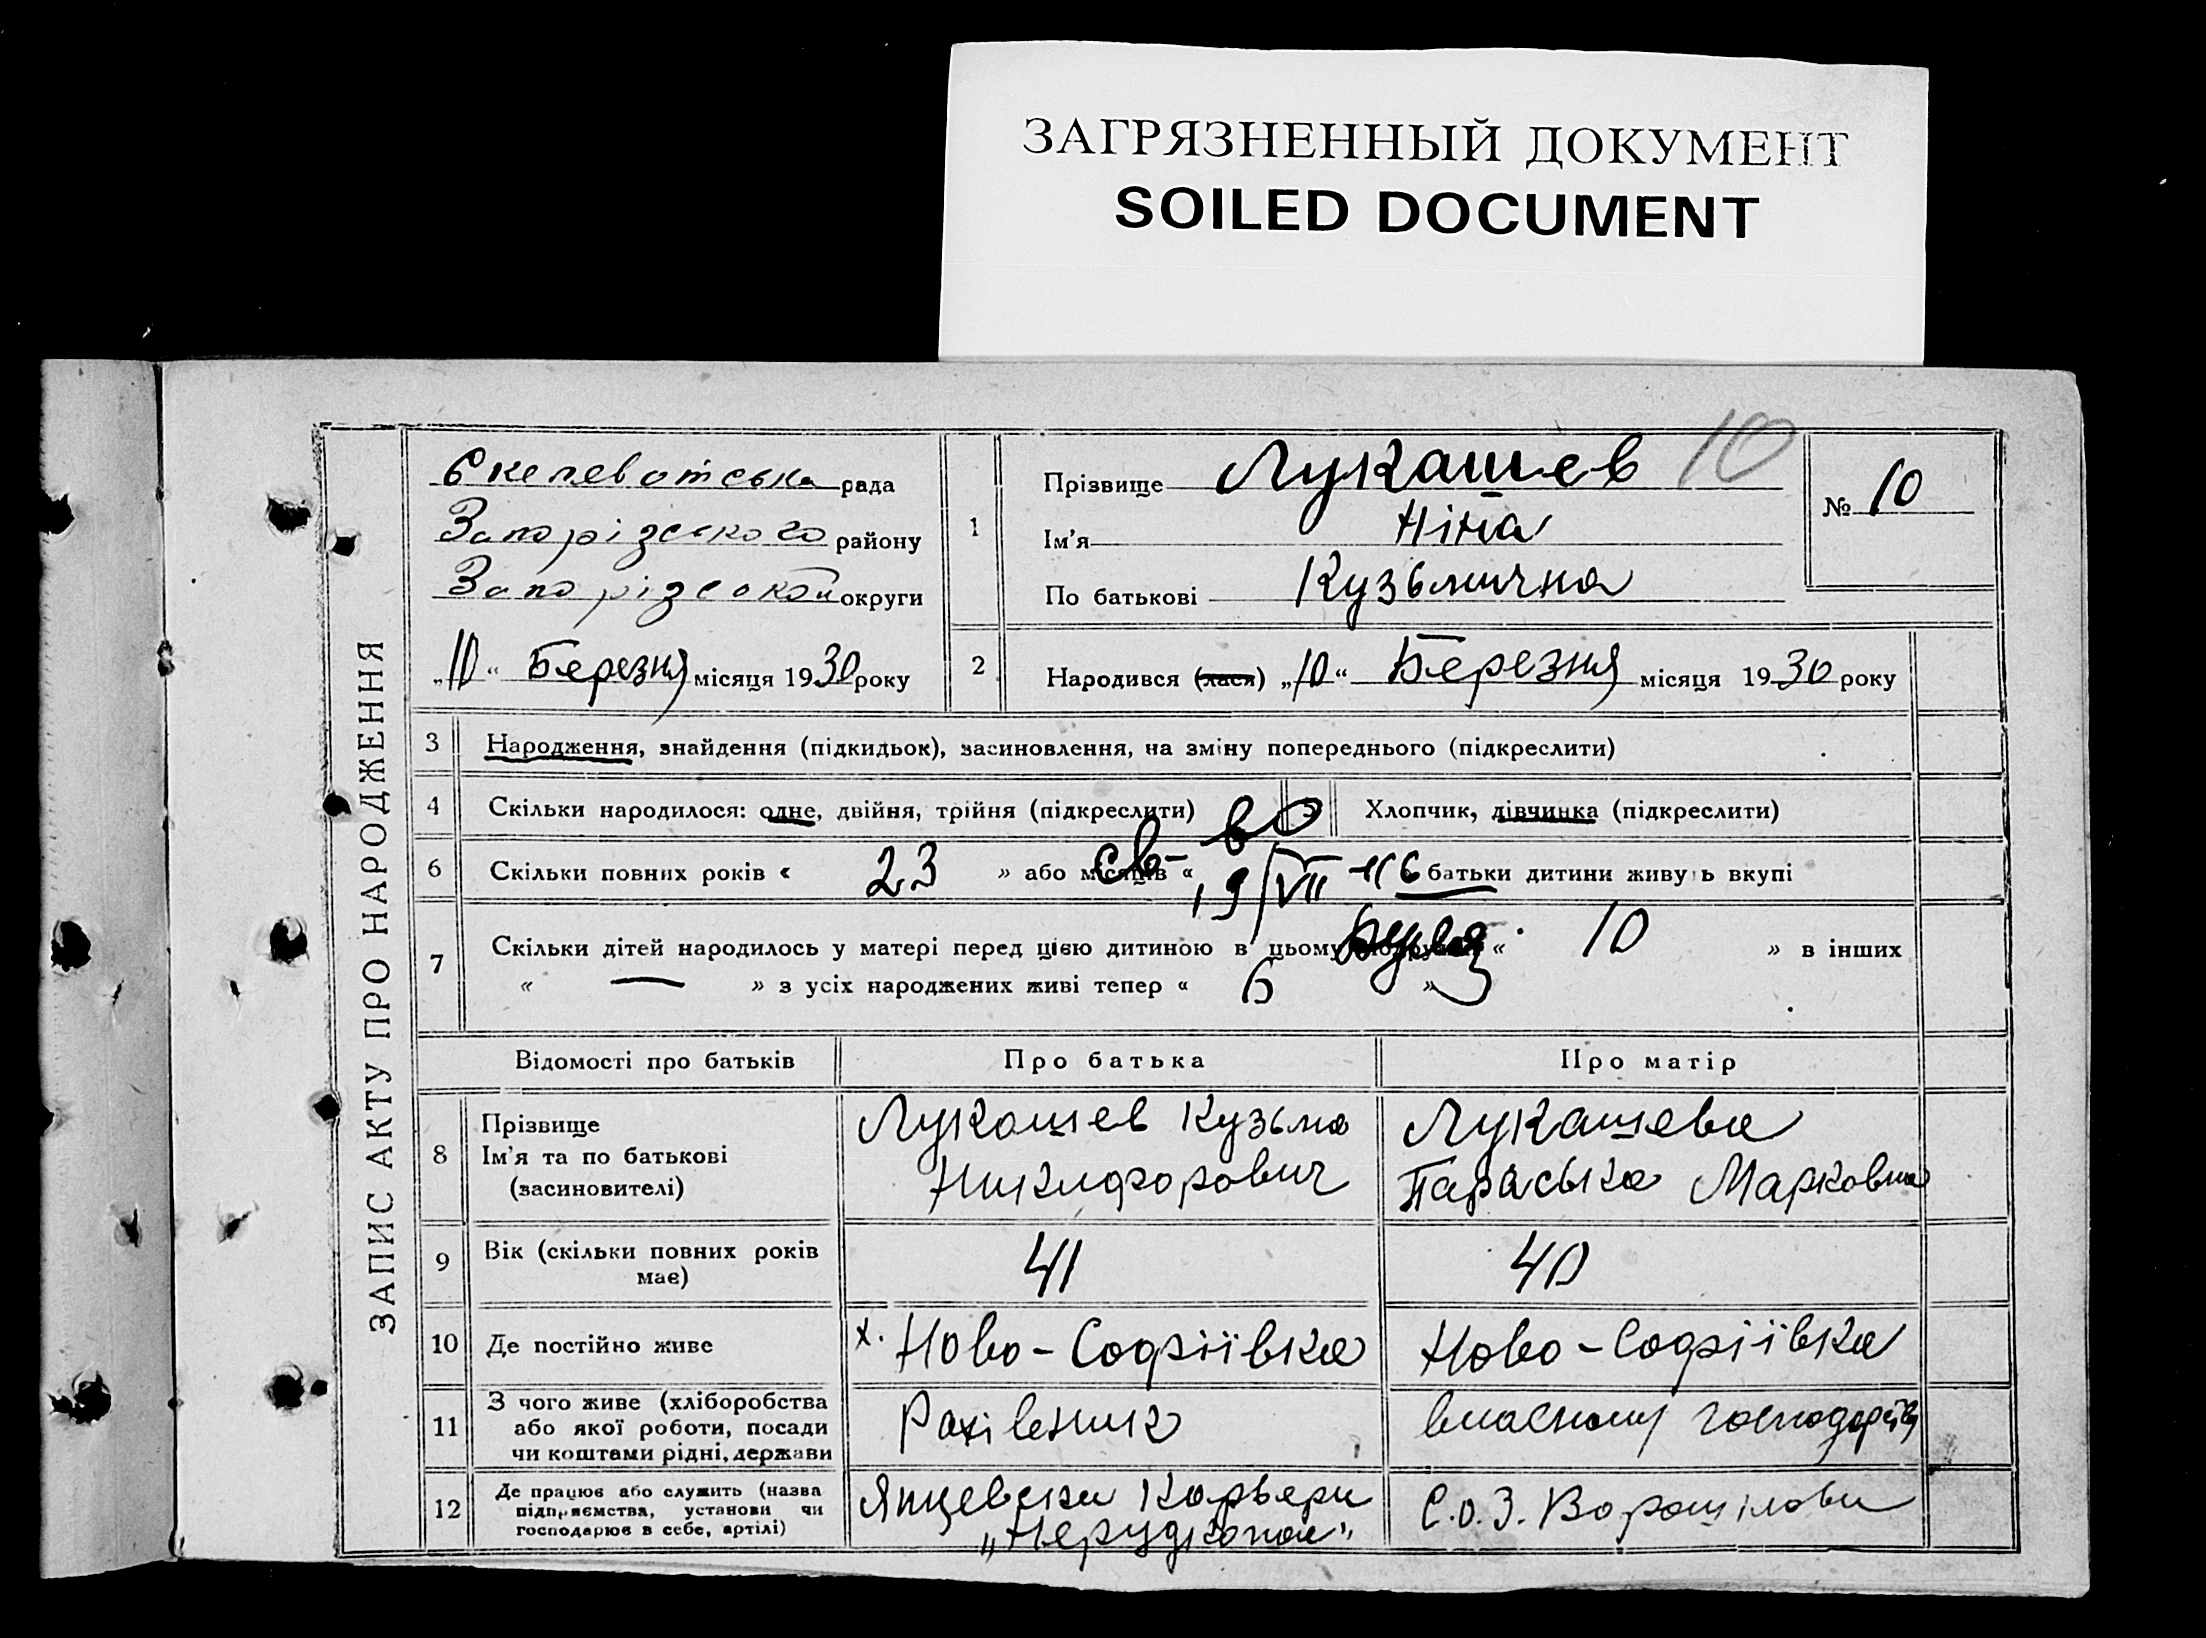 ЗАГРЯЗНЕННЫЙ ДОКУМЕНТ
SOILED DOCUMENT
ЗАПИС АКТУ ПРО НАРОДЖЕННЯ
рада
Запорізського району
Запорізської округи
„10“ Березня місяця 1930 року
1
Прізвище Лукашев 10
Ім'я Ніна
По батькові Кузьмична
№ 10
2
Народився (лася) „10“ Березня місяця 1930 року
3 Народження, знайдення (підкидьок), засиновлення, на зміну попереднього (підкреслити)
4 Скільки народилося: одне, двійня, трійня (підкреслити)
5 Хлопчик, дівчинка (підкреслити)
6 Скільки повних років « 23 » або місяців « батьки дитини живуть вкупі
св-во
19/VII
7 Скільки дітей народилось у матері перед цією дитиною в цьому « 10 » в інших
« — » з усіх народжених живі тепер « 6 »
Відомості про батьків
Про батька
Про матір
8 Прізвище
Ім'я та по батькові
(засиновителі)
Лукашев Кузьма
Никифорович
Лукашева
Параська Марковна
9 Вік (скільки повних років
має)
41
40
10 Де постійно живе
х. Ново-Софіївка
Ново-Софіївка
11 З чого живе (хліборобства
або якої роботи, посади
чи коштами рідні, держави
власному господарстві
12 Де працює або служить (назва
підприємства, установи чи
господарює в себе, артілі)
Янцевски Карьери
„Нерудкопал“
С.о.З. Ворошілова